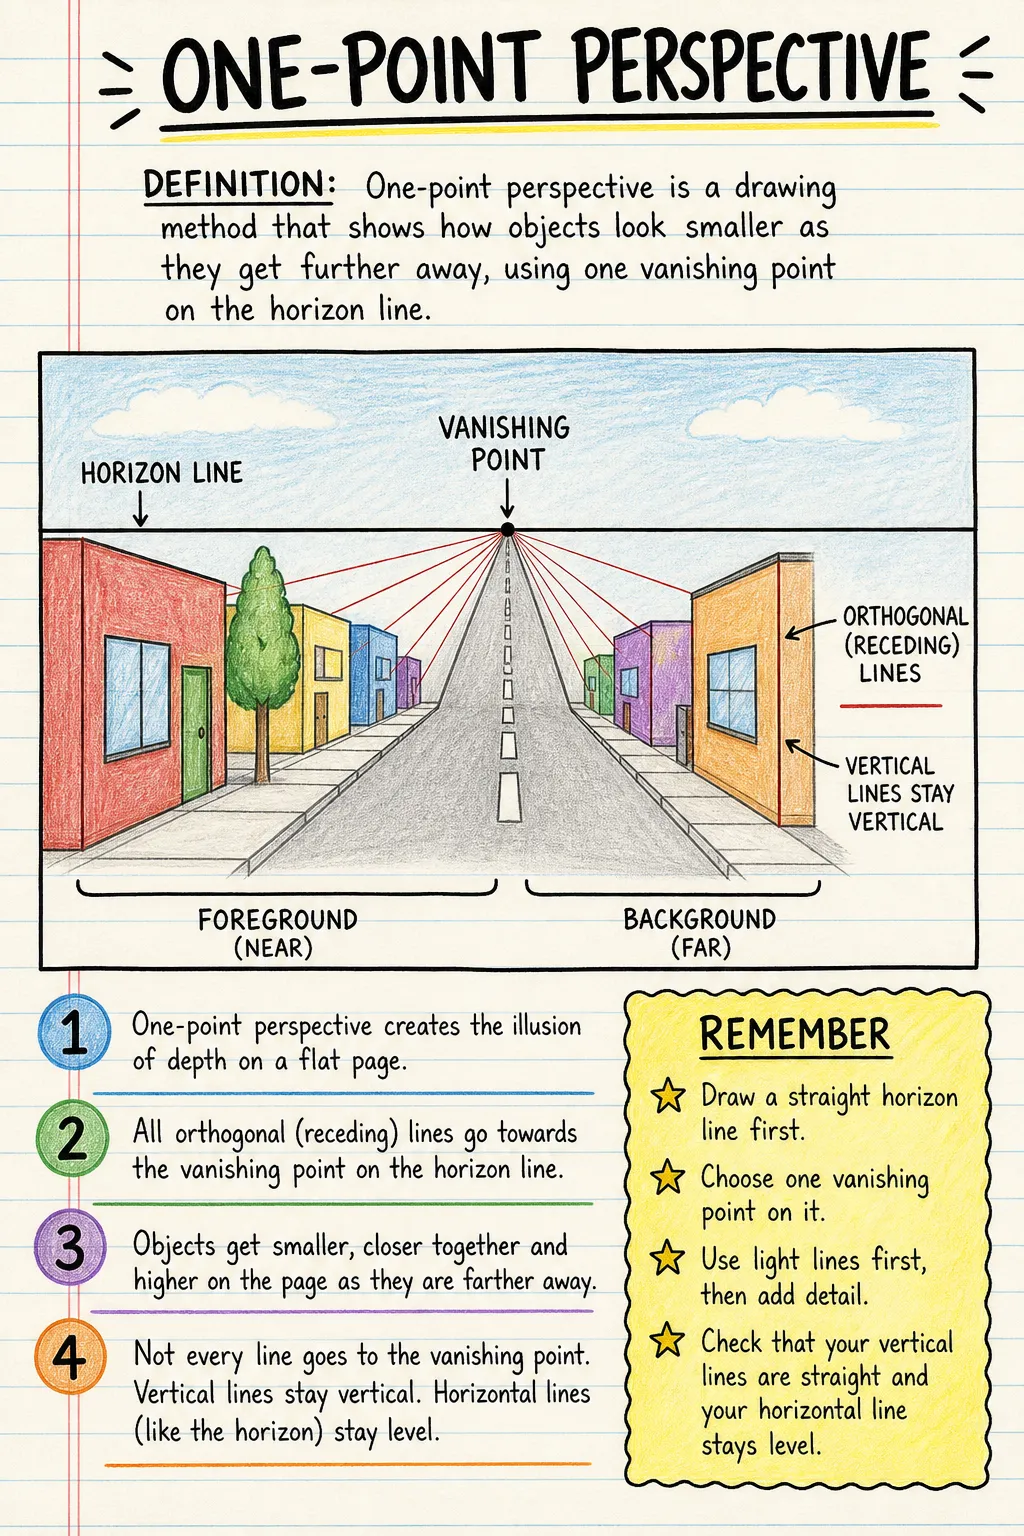 ONE-POINT PERSPECTIVE
DEFINITION: One-point perspective is a drawing
method that shows how objects look smaller as
they get further away, using one vanishing point
on the horizon line.
VANISHING
POINT
HORIZON LINE
ORTHOGONAL
(RECEDING)
LINES
VERTICAL
LINES STAY
VERTICAL
FOREGROUND
(NEAR)
BACKGROUND
(FAR)
1 One-point perspective creates the illusion
of depth on a flat page.
2 All orthogonal (receding) lines go towards
the vanishing point on the horizon line.
3 Objects get smaller, closer together and
higher on the page as they are farther away.
4 Not every line goes to the vanishing point.
Vertical lines stay vertical. Horizontal lines
(like the horizon) stay level.
REMEMBER
Draw a straight horizon
line first.
Choose one vanishing
point on it.
Use light lines first,
then add detail.
Check that your vertical
lines are straight and
your horizontal line
stays level.